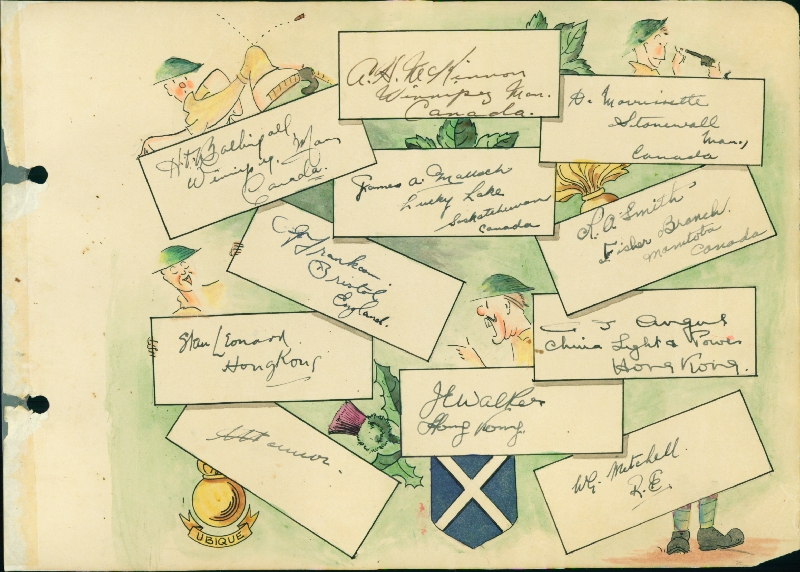 A. H. McKinnon
Winnipeg Man.
Canada.
D. Morrissette
Stonewall
Man.,
Canada
H. T.
Winnipeg. Man
Canada
James A. Mulloch
Lucky Lake
Saskatchewan
Canada
R. A. Smith
Fisher Branch.
Manitoba
Canada
Bristol
England.
Stan Leonard
Hong Kong
J Angus
China Light & Power
Hong Kong.
J E Walker
Hong Kong.
W. G. Mitchell.
R.E.
UBIQUE